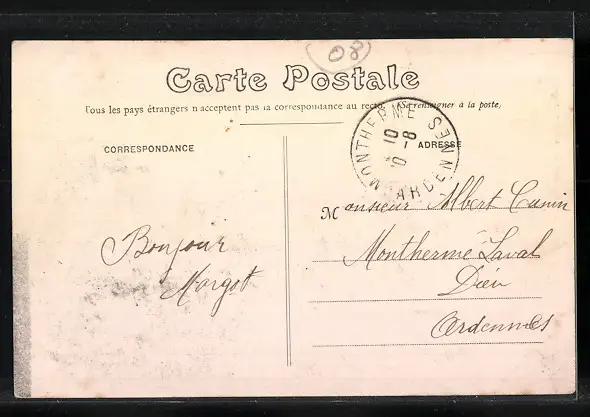 08
Carte Postale
Tous les pays étrangers n'acceptent pas la correspondance au recto. (Se renseigner à la poste)
CORRESPONDANCE
ADRESSE
MONTHERMÉ
10 - 8
10
ARDENNES
Monsieur Albert Cunin
Monthermé Laval
Dieu
Ardennes
Bonjour
Margot